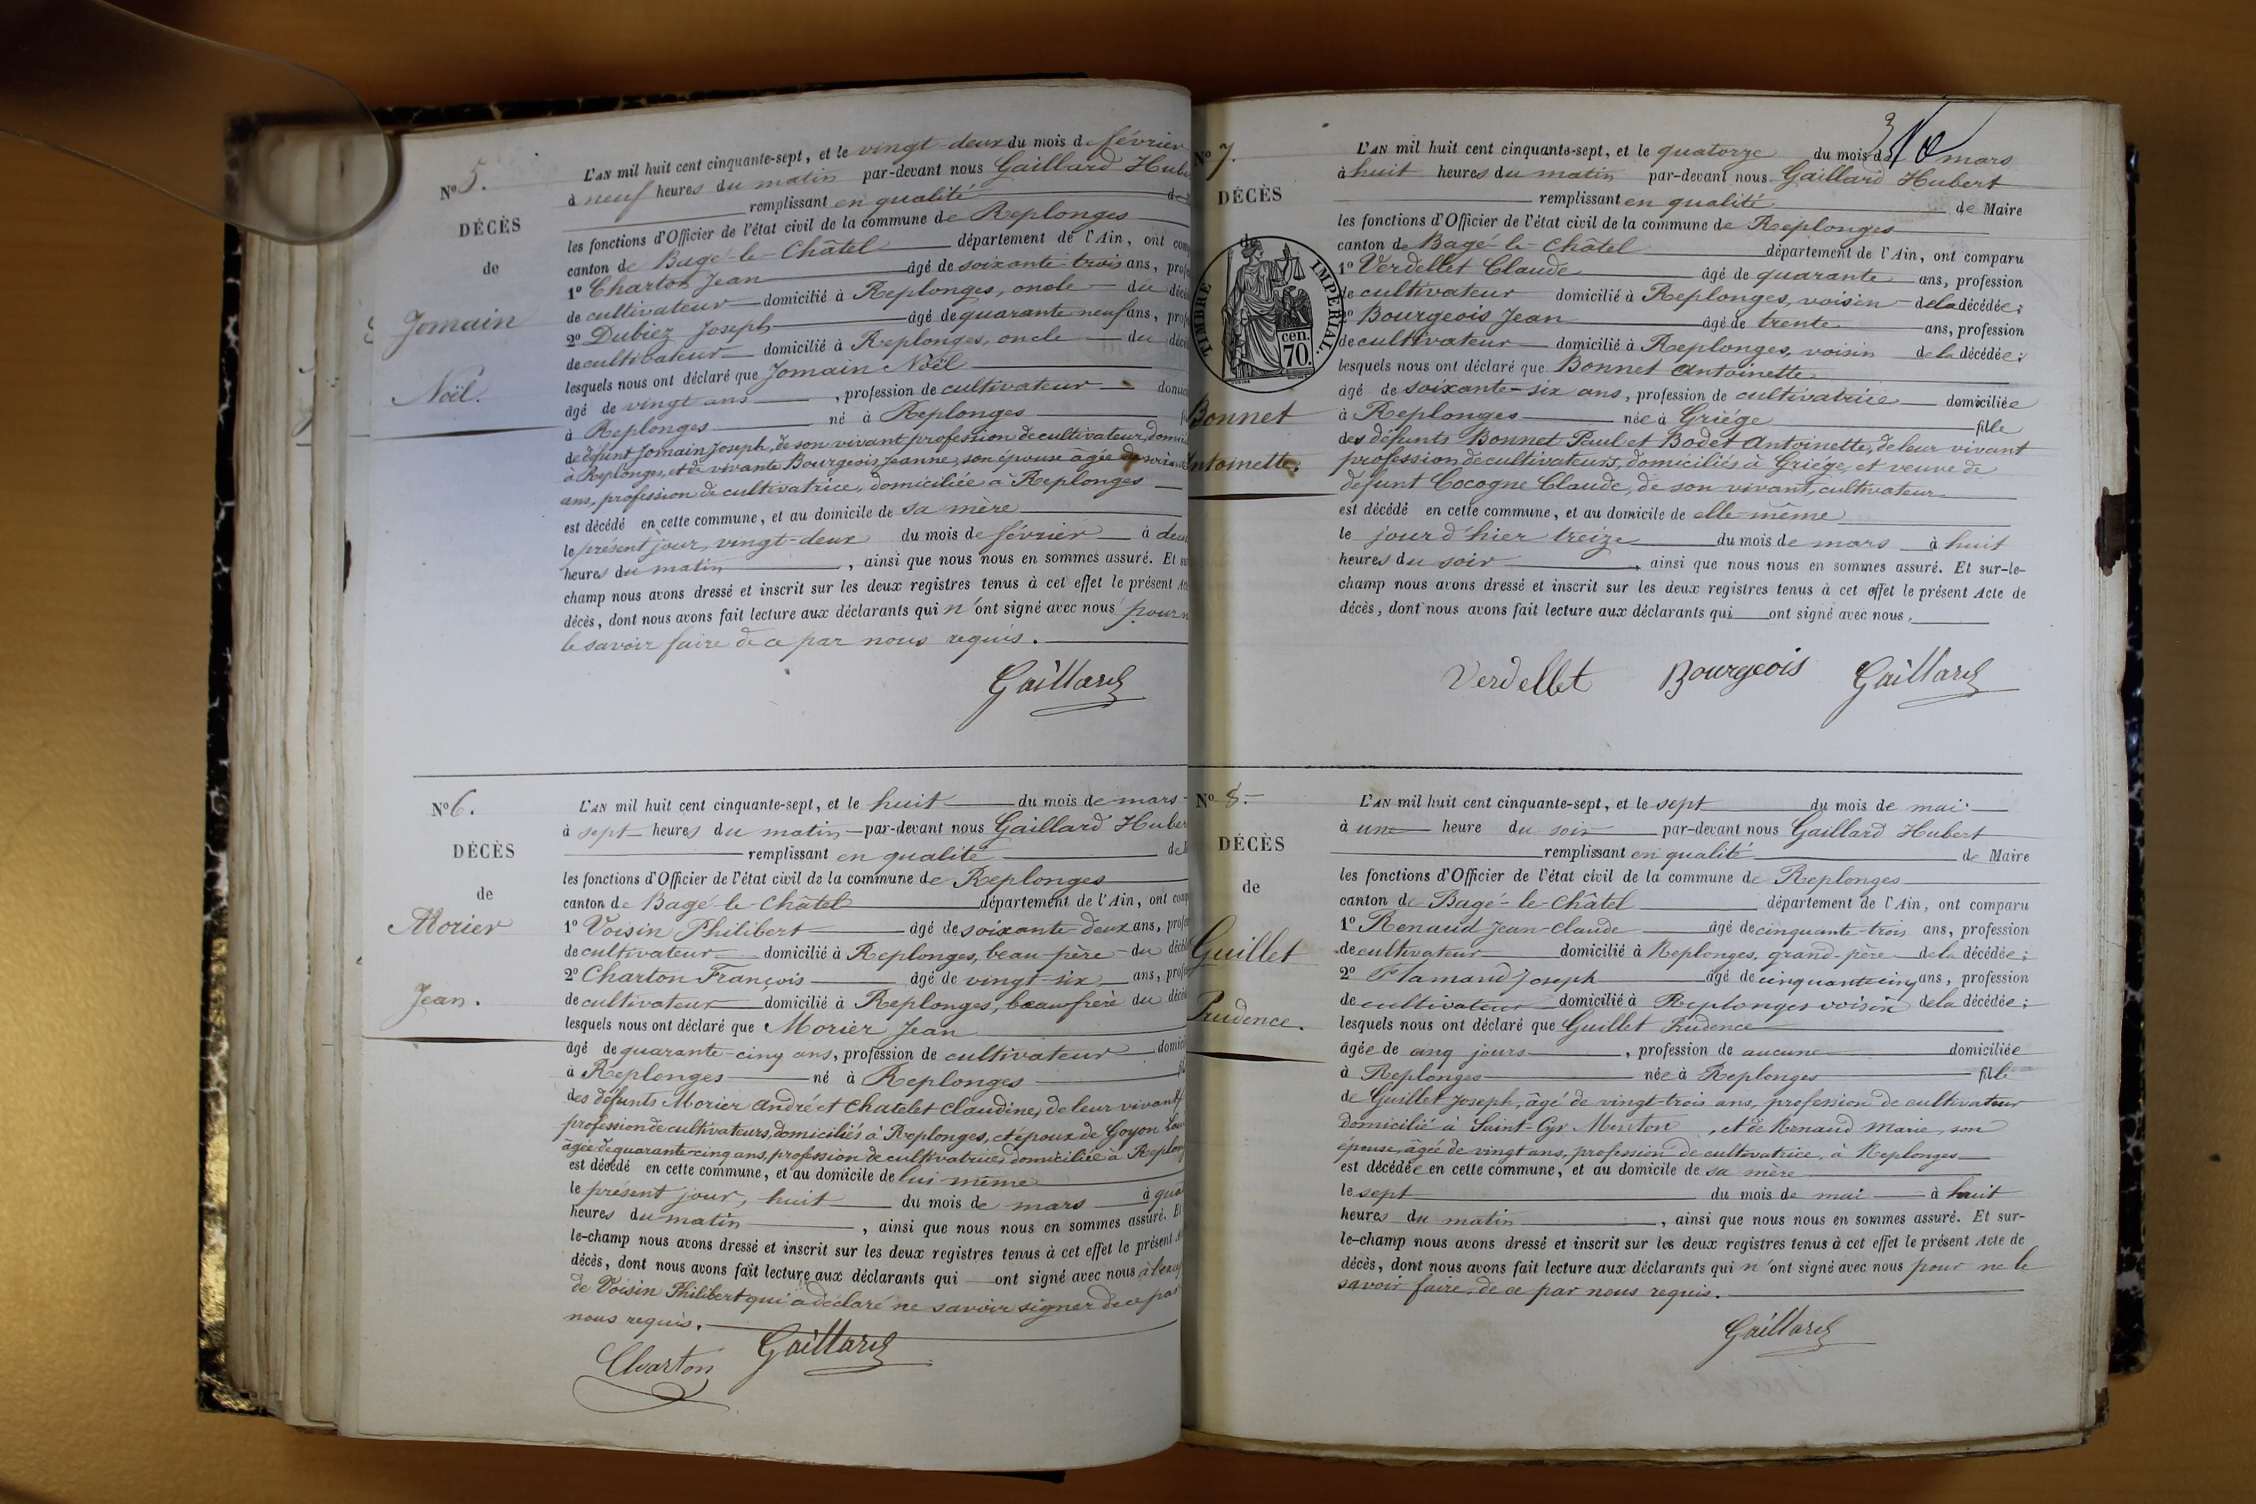 N° 5.
DÉCÈS
de
Jomain
Noël.
L'AN mil huit cent cinquante-sept, et le vingt-deux du mois de février
à neuf heures du matin par-devant nous Gaillard Hube
remplissant en qualité de
les fonctions d'Officier de l'état civil de la commune de Replonges
canton de Bagé-le-Châtel département de l'Ain, ont com
1° Charton Jean âgé de soixante-trois ans, prof
de cultivateur domicilié à Replonges, oncle du décé
2° Dubiez Joseph âgé de quarante neuf ans, prof
de cultivateur domicilié à Replonges, oncle du décé
lesquels nous ont déclaré que Jomain Noël
âgé de vingt ans, profession de cultivateur domici
à Replonges né à Replonges fi
de défunt Jomain Joseph, de son vivant profession de cultivateur, domici
à Replonges, et de vivante Bourgeois Jeanne, son épouse âgée de
ans, profession de cultivatrice, domiciliée à Replonges
est décédé en cette commune, et au domicile de sa mère
le présent jour, vingt-deux du mois de février à deux
heures du matin, ainsi que nous nous en sommes assuré. Et su
champ nous avons dressé et inscrit sur les deux registres tenus à cet effet le présent Acte
décès, dont nous avons fait lecture aux déclarants qui n'ont signé avec nous pour n
le savoir faire de ce par nous requis.
Gaillard
N° 6.
DÉCÈS
de
Morier
Jean.
L'AN mil huit cent cinquante-sept, et le huit du mois de mars
à sept heures du matin par-devant nous Gaillard Huber
remplissant en qualité de
les fonctions d'Officier de l'état civil de la commune de Replonges
canton de Bagé-le-Châtel département de l'Ain, ont comp
1° Voisin Philibert âgé de soixante-deux ans, profes
de cultivateur domicilié à Replonges, beau-père du décé
2° Charton François âgé de vingt-six ans, profe
de cultivateur domicilié à Replonges, beau frère du décé
lesquels nous ont déclaré que Morier Jean
âgé de quarante-cinq ans, profession de cultivateur domici
à Replonges né à Replonges fi
des défunts Morier André et Chatelet Claudine, de leur vivant
profession de cultivateurs, domiciliés à Replonges, et époux de Goyon
âgée de quarante-cinq ans, profession de cultivatrice, domiciliée à Replon
est décédé en cette commune, et au domicile de lui même
le présent jour, huit du mois de mars à qua
heures du matin, ainsi que nous nous en sommes assuré. Et
le-champ nous avons dressé et inscrit sur les deux registres tenus à cet effet le présent
décès, dont nous avons fait lecture aux déclarants qui ont signé avec nous à l'exc
de Voisin Philibert qui a déclaré ne savoir signer de ce par
nous requis.
Charton Gaillard
N° 7.
DÉCÈS
de
TIMBRE IMPERIAL.
70 cen.
Bonnet
Antoinette.
L'AN mil huit cent cinquante-sept, et le quatorze du mois de mars
à huit heures du matin par-devant nous Gaillard Hubert
remplissant en qualité de Maire
les fonctions d'Officier de l'état civil de la commune de Replonges
canton de Bagé-le-Châtel département de l'Ain, ont comparu
1° Verdellet Claude âgé de quarante ans, profession
de cultivateur domicilié à Replonges, voisin de la décédée;
2° Bourgeois Jean âgé de trente ans, profession
de cultivateur domicilié à Replonges, voisin de la décédée;
lesquels nous ont déclaré que Bonnet Antoinette
âgé de soixante-six ans, profession de cultivatrice domiciliée
à Replonges née à Griége fille
des défunts Bonnet Paul et Bodet Antoinette, de leur vivant
profession de cultivateurs, domiciliés à Griége, et veuve de
défunt Cocogne Claude, de son vivant, cultivateur
est décédé en cette commune, et au domicile de elle-même
le jour d'hier treize du mois de mars à huit
heures du soir, ainsi que nous nous en sommes assuré. Et sur-le-
champ nous avons dressé et inscrit sur les deux registres tenus à cet effet le présent Acte de
décès, dont nous avons fait lecture aux déclarants qui ont signé avec nous.
Verdellet Bourgeois Gaillard
N° 8.
DÉCÈS
de
Guillet
Prudence.
L'AN mil huit cent cinquante-sept, et le sept du mois de mai
à une heure du soir par-devant nous Gaillard Hubert
remplissant en qualité de Maire
les fonctions d'Officier de l'état civil de la commune de Replonges
canton de Bagé-le-Châtel département de l'Ain, ont comparu
1° Renaud Jean-Claude âgé de cinquante-trois ans, profession
de cultivateur domicilié à Replonges, grand-père de la décédée;
2° Flamand Joseph âgé de cinquante cinq ans, profession
de cultivateur domicilié à Replonges voisin de la décédée;
lesquels nous ont déclaré que Guillet Prudence
âgée de cinq jours, profession de aucune domiciliée
à Replonges née à Replonges fille
de Guillet Joseph, âgé de vingt-trois ans, profession de cultivateur
domicilié à Saint-Cyr Menton, et de Renaud Marie, son
épouse, âgée de vingt ans, profession de cultivatrice, à Replonges
est décédée en cette commune, et au domicile de sa mère
le sept du mois de mai à huit
heures du matin, ainsi que nous nous en sommes assuré. Et sur-
le-champ nous avons dressé et inscrit sur les deux registres tenus à cet effet le présent Acte de
décès, dont nous avons fait lecture aux déclarants qui n'ont signé avec nous pour ne le
savoir faire, de ce par nous requis.
Gaillard